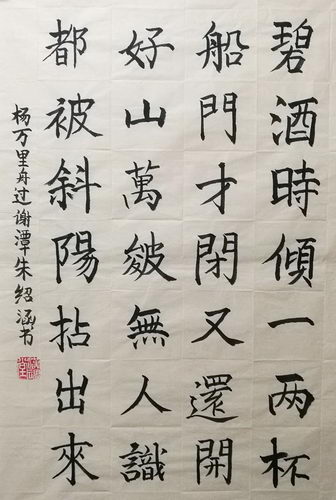 碧酒時傾一两杯
船門才閉又還開
好山萬皴無人識
都被斜陽拈出來
杨万里舟过谢潭朱绍涵书